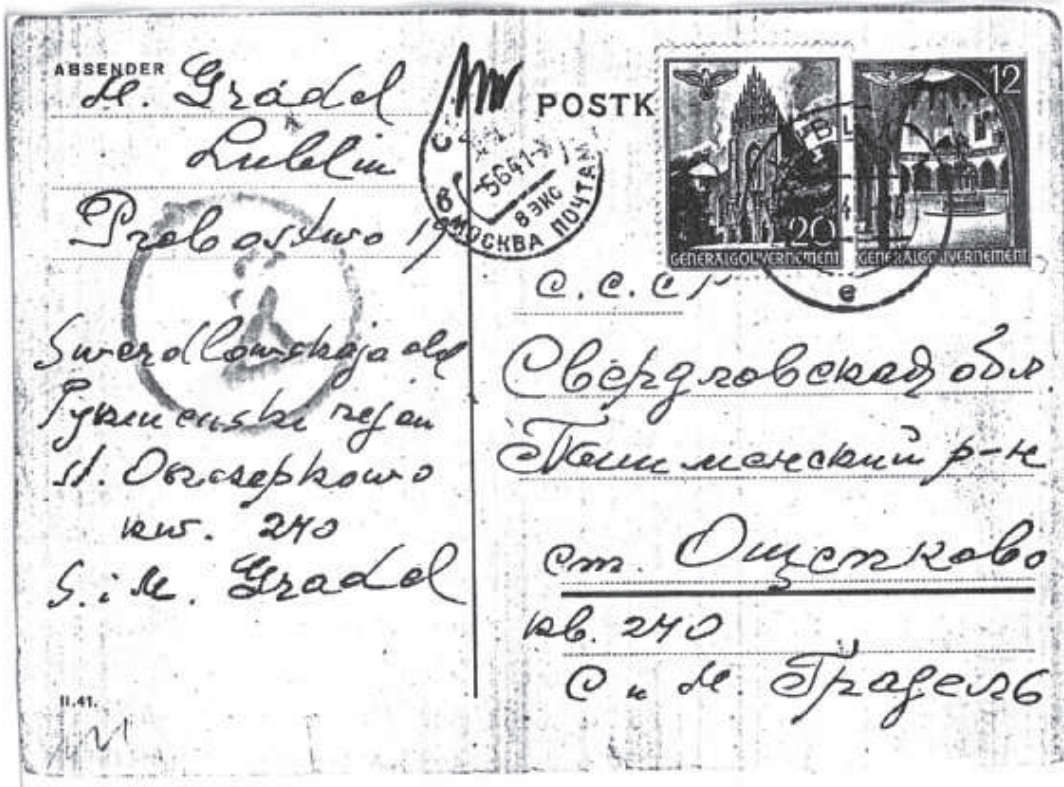 ABSENDER
M. Gradel
Lublin
Probostwo 19
Swerdlowskaja obl
rejon
st. Oszczepkowo
kw. 240
S. i M. Gradel
II.41.
POSTK
МОСКВА ПОЧТАМ
8 ЭКС
-5641-
20
GENERALGOUVERNEMENT
12
GENERALGOUVERNEMENT
e
С.С.С.Р
Свердловская обл
р-н
ст. Ощепково
кв. 240
С и М. Градель